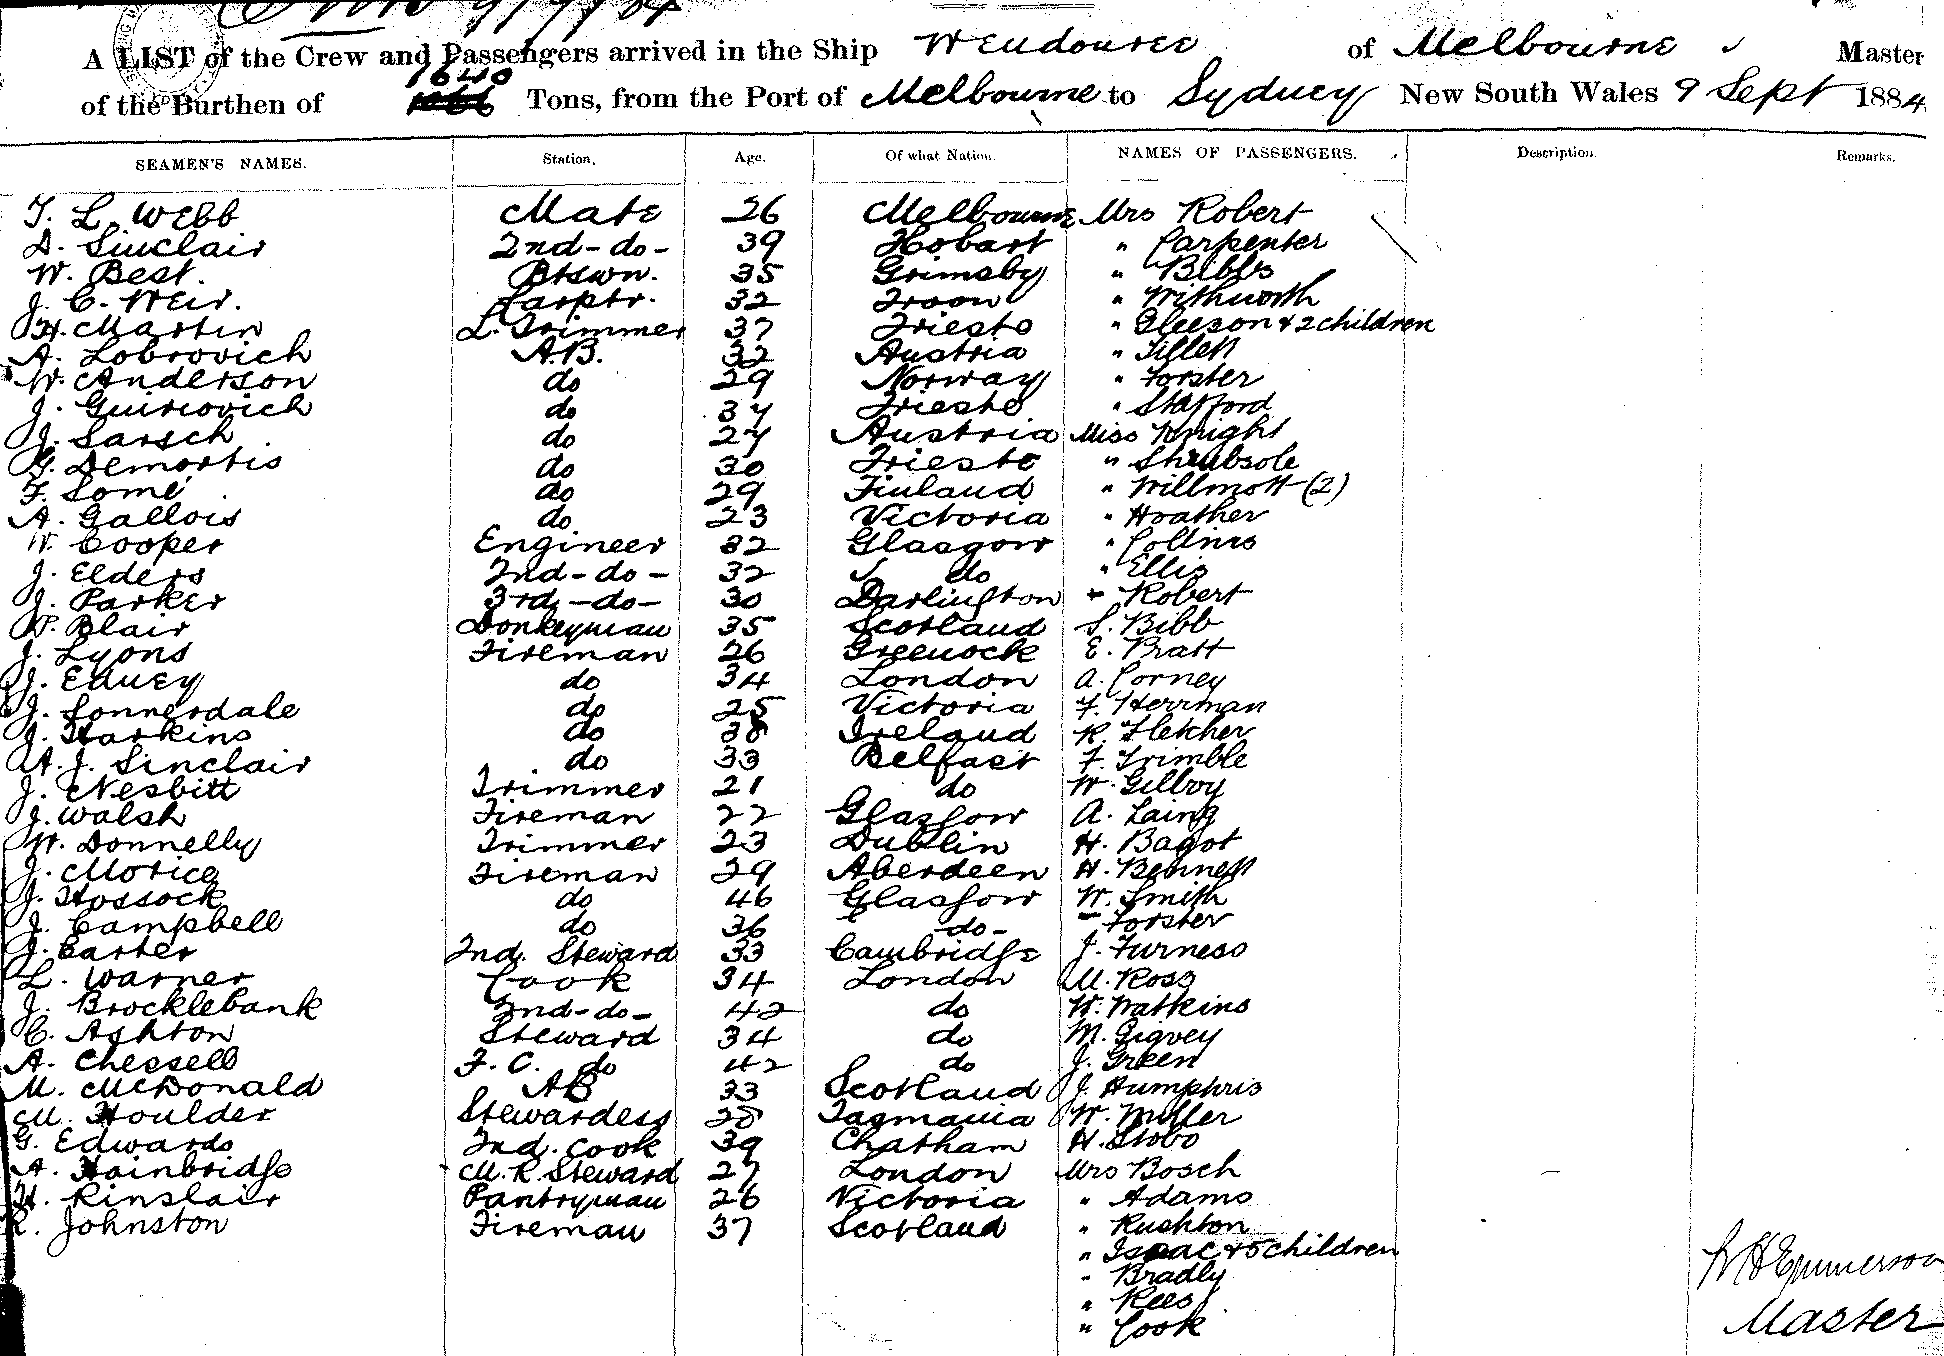 A LIST of the Crew and Passengers arrived in the Ship Wendouree of Melbourne Master
of the Burthen of 1640 Tons, from the Port of Melbourne to Sydney New South Wales 9 Sept 1884
SEAMEN'S NAMES. Station. Age. Of what Nation. NAMES OF PASSENGERS. Description. Remarks.
T. L. Webb Mate 26 Melbourne Mrs Robert
D. Sinclair 2nd-do- 39 Hobart " Carpenter
W. Best. Btswn. 35 Grimsby " Bibbs
J. C. Weir. Carptr. 32 Troon " Withworth
H. Martin L. Trimmer 37 Trieste " Gleeson & 2 children
A. Lobrovich A.B. 32 Austria " Tillett
W. Anderson do 29 Norway " Forster
J. Guirovich do 37 Trieste " Stafford
J. Sarsch do 27 Austria Miss Knight
G. Demortis do 30 Trieste " Shrubsole
F. Lomé do 29 Finland " Willmott (2)
A. Gallois do 23 Victoria " Hoather
W. Cooper Engineer 32 Glasgow " Collins
J. Elders 2nd-do- 32 do " Ellis
J. Parker 3rd-do- 30 Darlington " Robert
W. Blair Donkeyman 35 Scotland S. Bibb
J. Lyons Fireman 26 Greenock E. Pratt
J. Edney do 34 London A. Corney
J. Lonnerdale do 25 Victoria F. Herrman
J. Harkins do 38 Ireland R. Fletcher
A. J. Sinclair do 33 Belfast F. Trimble
J. Nesbitt Trimmer 21 do W. Gillroy
J. Walsh Fireman 22 Glasgow A. Laing
W. Donnelly Trimmer 23 Dublin H. Bagot
J. Morice Fireman 29 Aberdeen H. Bennett
J. Hossock do 46 Glasgow W. Smith
J. Campbell do 36 do- " Forster
J. Carter 2nd. Steward 33 Cambridge J. Furness
L. Warner Cook 34 London M. Ross
J. Brocklebank 2nd-do- 42 do W. Watkins
C. Ashton Steward 34 do M. Gigvey
A. Chessell F. C. do 42 do J. Green
M. McDonald AB 33 Scotland J. Humphris
M. Houlder Stewardess 28 Tasmania W. Miller
G. Edwards 2nd. Cook 39 Chatham H. Stobo
A. Hainbridge M. R. Steward 27 London Mrs Bosch
H. Kinslair Pantryman 26 Victoria " Adams
R. Johnston Fireman 37 Scotland " Rushton
" Isaac & 5 children
" Bradly
" Rees
" Cook
Emmerson
Master